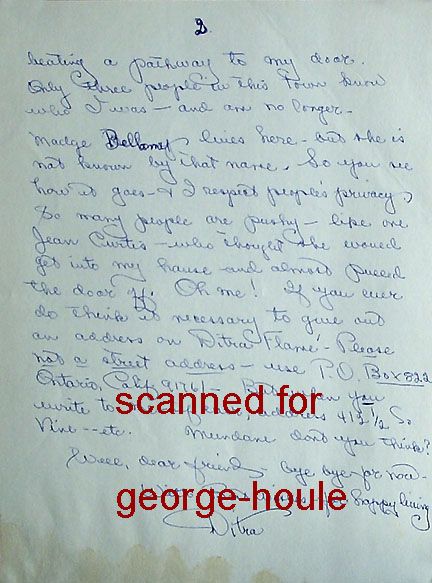 2.
beating a pathway to my door.
Only three people in this town know
who I was — and am no longer.
Madge Bellamy lives here - but she is
not known by that name. So you see
how it goes - & I respect people's privacy.
So many people are pushy — like one
Jean Curtis — who thought she would
get into my house and almost pulled
the door off. Oh me! If you ever
do think it necessary to give out
an address on "Ditra Flame" - Please
not a street address — use P.O. Box 822
Ontario, Calif 91761 - But when you
write to me address 412 1/2 So
Vine -- etc. Mundane don't you think?
Well, dear friend bye bye for now -
for happy living
Ditra
scanned for
george-houle